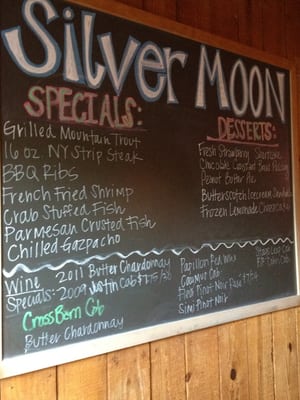 Silver Moon
SPECIALS:
Grilled Mountain Trout
16 oz NY Strip Steak
BBQ Ribs
French Fried Shrimp
Crab Stuffed Fish
Parmesan Crusted Fish
Chilled Gazpacho
DESSERTS:
Fresh Strawberry Shortcake
Chocolate Croissant Bread Pudding
Peanut Butter Pie
Butterscotch Icecream Sandwich
Frozen Lemonade Cheesecake
Wine Specials:
2011 Butter Chardonnay
2009 Justin Cab
Cross Barn Cab
Butter Chardonnay
Papillon Red Wine
Caymus Cab
Pinot Noir
Simi Pinot Noir
Stags Leap Cab